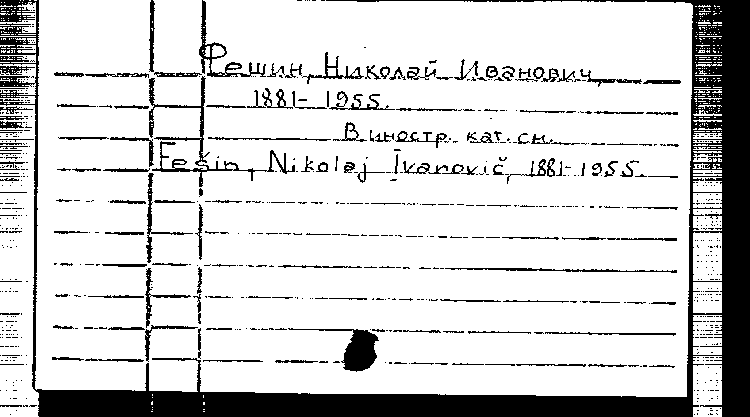 Фешин, Николай Иванович,
1881-1955.
В иностр. кат. см.
Fešin, Nikolaj Ivanovič, 1881-1955.